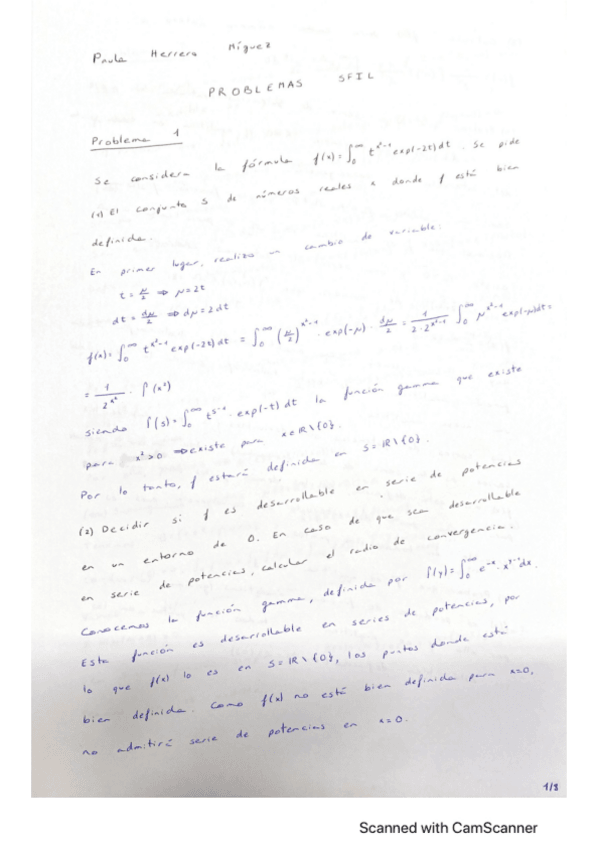 Paula Herrero Míguez
PROBLEMAS SFIL
Problema 1
Se considera la fórmula f(x)=∫₀^∞ t^(x²-1) exp(-2t)dt. Se pide
(1) El conjunto S de números reales x donde f está bien
definida.
En primer lugar, realizo un cambio de variable:
t = μ/2 ⇒ μ=2t
dt = dμ/2 ⇒ dμ=2dt
f(x)=∫₀^∞ t^(x²-1) exp(-2t)dt = ∫₀^∞ (μ/2)^(x²-1) · exp(-μ) · dμ/2 = 1/(2·2^(x²-1)) ∫₀^∞ μ^(x²-1) exp(-μ)dμ=
= 1/2^(x²) · Γ(x²)
siendo Γ(s)=∫₀^∞ t^(s-1) · exp(-t)dt la función gamma que existe
para x²>0 ⇒ existe para x∈ℝ\{0}.
Por lo tanto, f estará definida en S=ℝ\{0}.
(2) Decidir si f es desarrollable en serie de potencias
en un entorno de 0. En caso de que sea desarrollable
en serie de potencias, calcular el radio de convergencia.
Conocemos la función gamma, definida por Γ(y)=∫₀^∞ e^(-x) · x^(y-1) dx.
Esta función es desarrollable en series de potencias, por
lo que f(x) lo es en S=ℝ\{0}, los puntos donde está
bien definida. Como f(x) no está bien definida para x=0,
no admitirá serie de potencias en x=0.
1/8
Scanned with CamScanner